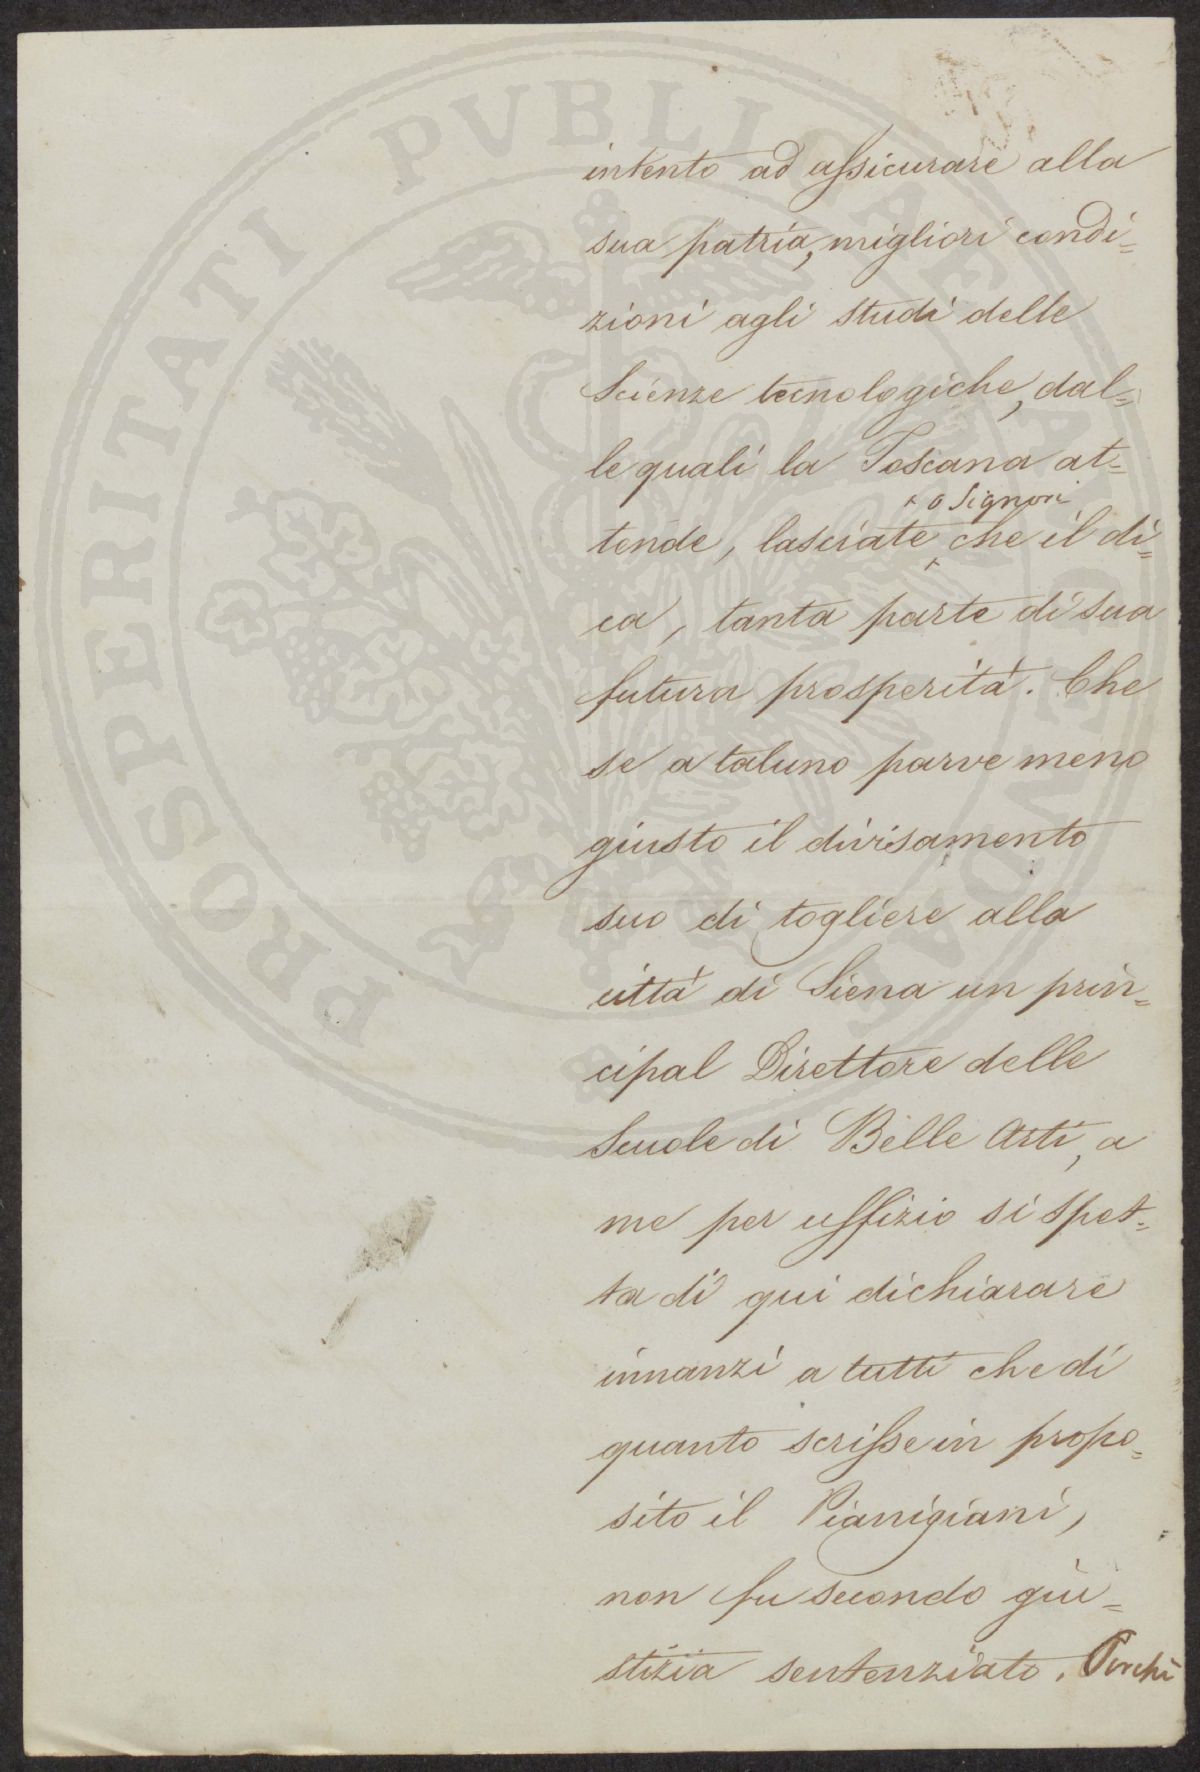 PROSPERITATI PVBLICAE
intento ad assicurare alla
sua patria, migliori condi=
zioni agli studi delle
Scienze tecnologiche, dal=
le quali la Toscana at=
× o Signori
tende, lasciate × che il di=
ca, tanta parte di sua
futura prosperità. Che
se a taluno parve meno
giusto il divisamento
suo di togliere alla
città di Siena un prin=
cipal Direttore delle
Scuole di Belle Arti, a
me per uffizio si spet=
ta di qui dichiarare
innanzi a tutti che di
quanto scrisse in propo=
sito il Pianigiani,
non fu secondo giu=
stizia sentenziato. Perchè